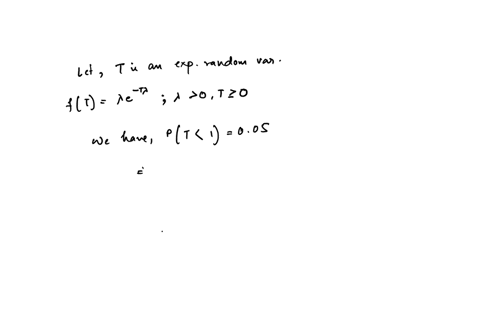 Let, T is an exp. random var.
f(T) = λe^{-Tλ} ; λ > 0, T ≥ 0
We have, P(T < 1) = 0.05
=